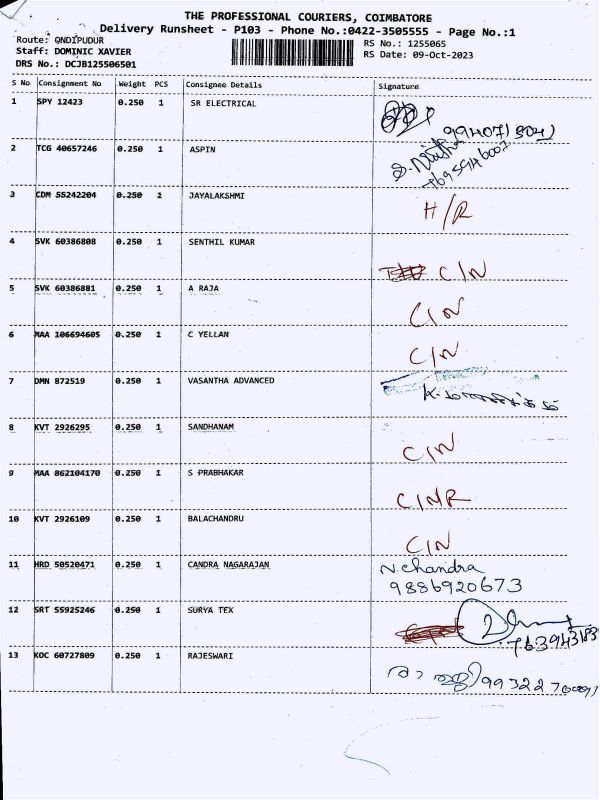 THE PROFESSIONAL COURIERS, COIMBATORE
Delivery Runsheet - P103 - Phone No.:0422-3505555 - Page No.:1
Route: ONDIPUDUR
RS No.: 1255065
Staff: DOMINIC XAVIER
RS Date: 09-Oct-2023
DRS No.: DCJB125506501
S No Consignment No Weight PCS Consignee Details Signature
1 SPY 12423 0.250 1 SR ELECTRICAL
2 TCG 40657246 0.250 1 ASPIN
3 CDM 55242204 0.250 1 JAYALAKSHMI H/R
4 SVK 60386808 0.250 1 SENTHIL KUMAR C/N
5 SVK 60386881 0.250 1 A RAJA C/N
6 MAA 106694605 0.250 1 C YELLAN C/N
7 DMN 872519 0.250 1 VASANTHA ADVANCED
8 KVT 2926295 0.250 1 SANDHANAM C/N
9 MAA 862104170 0.250 1 S PRABHAKAR C/NR
10 KVT 2926109 0.250 1 BALACHANDRU C/N
11 HRD 50520471 0.250 1 CANDRA NAGARAJAN N. Chandra
9886920673
12 SRT 55925246 0.250 1 SURYA TEX
13 KOC 60727809 0.250 1 RAJESWARI